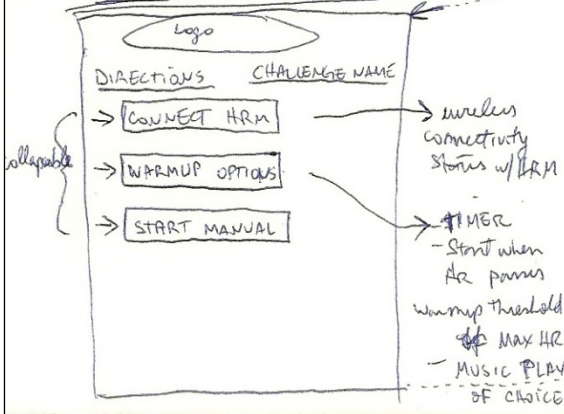 Logo
DIRECTIONS
CHALLENGE NAME
CONNECT HRM
WARMUP OPTIONS
START MANUAL
collapsable
wireless
connectivity
Status w/ HRM
- TIMER
- Start when
HR passes
warmup threshold
of Max HR
- MUSIC PLAY
OF CHOICE